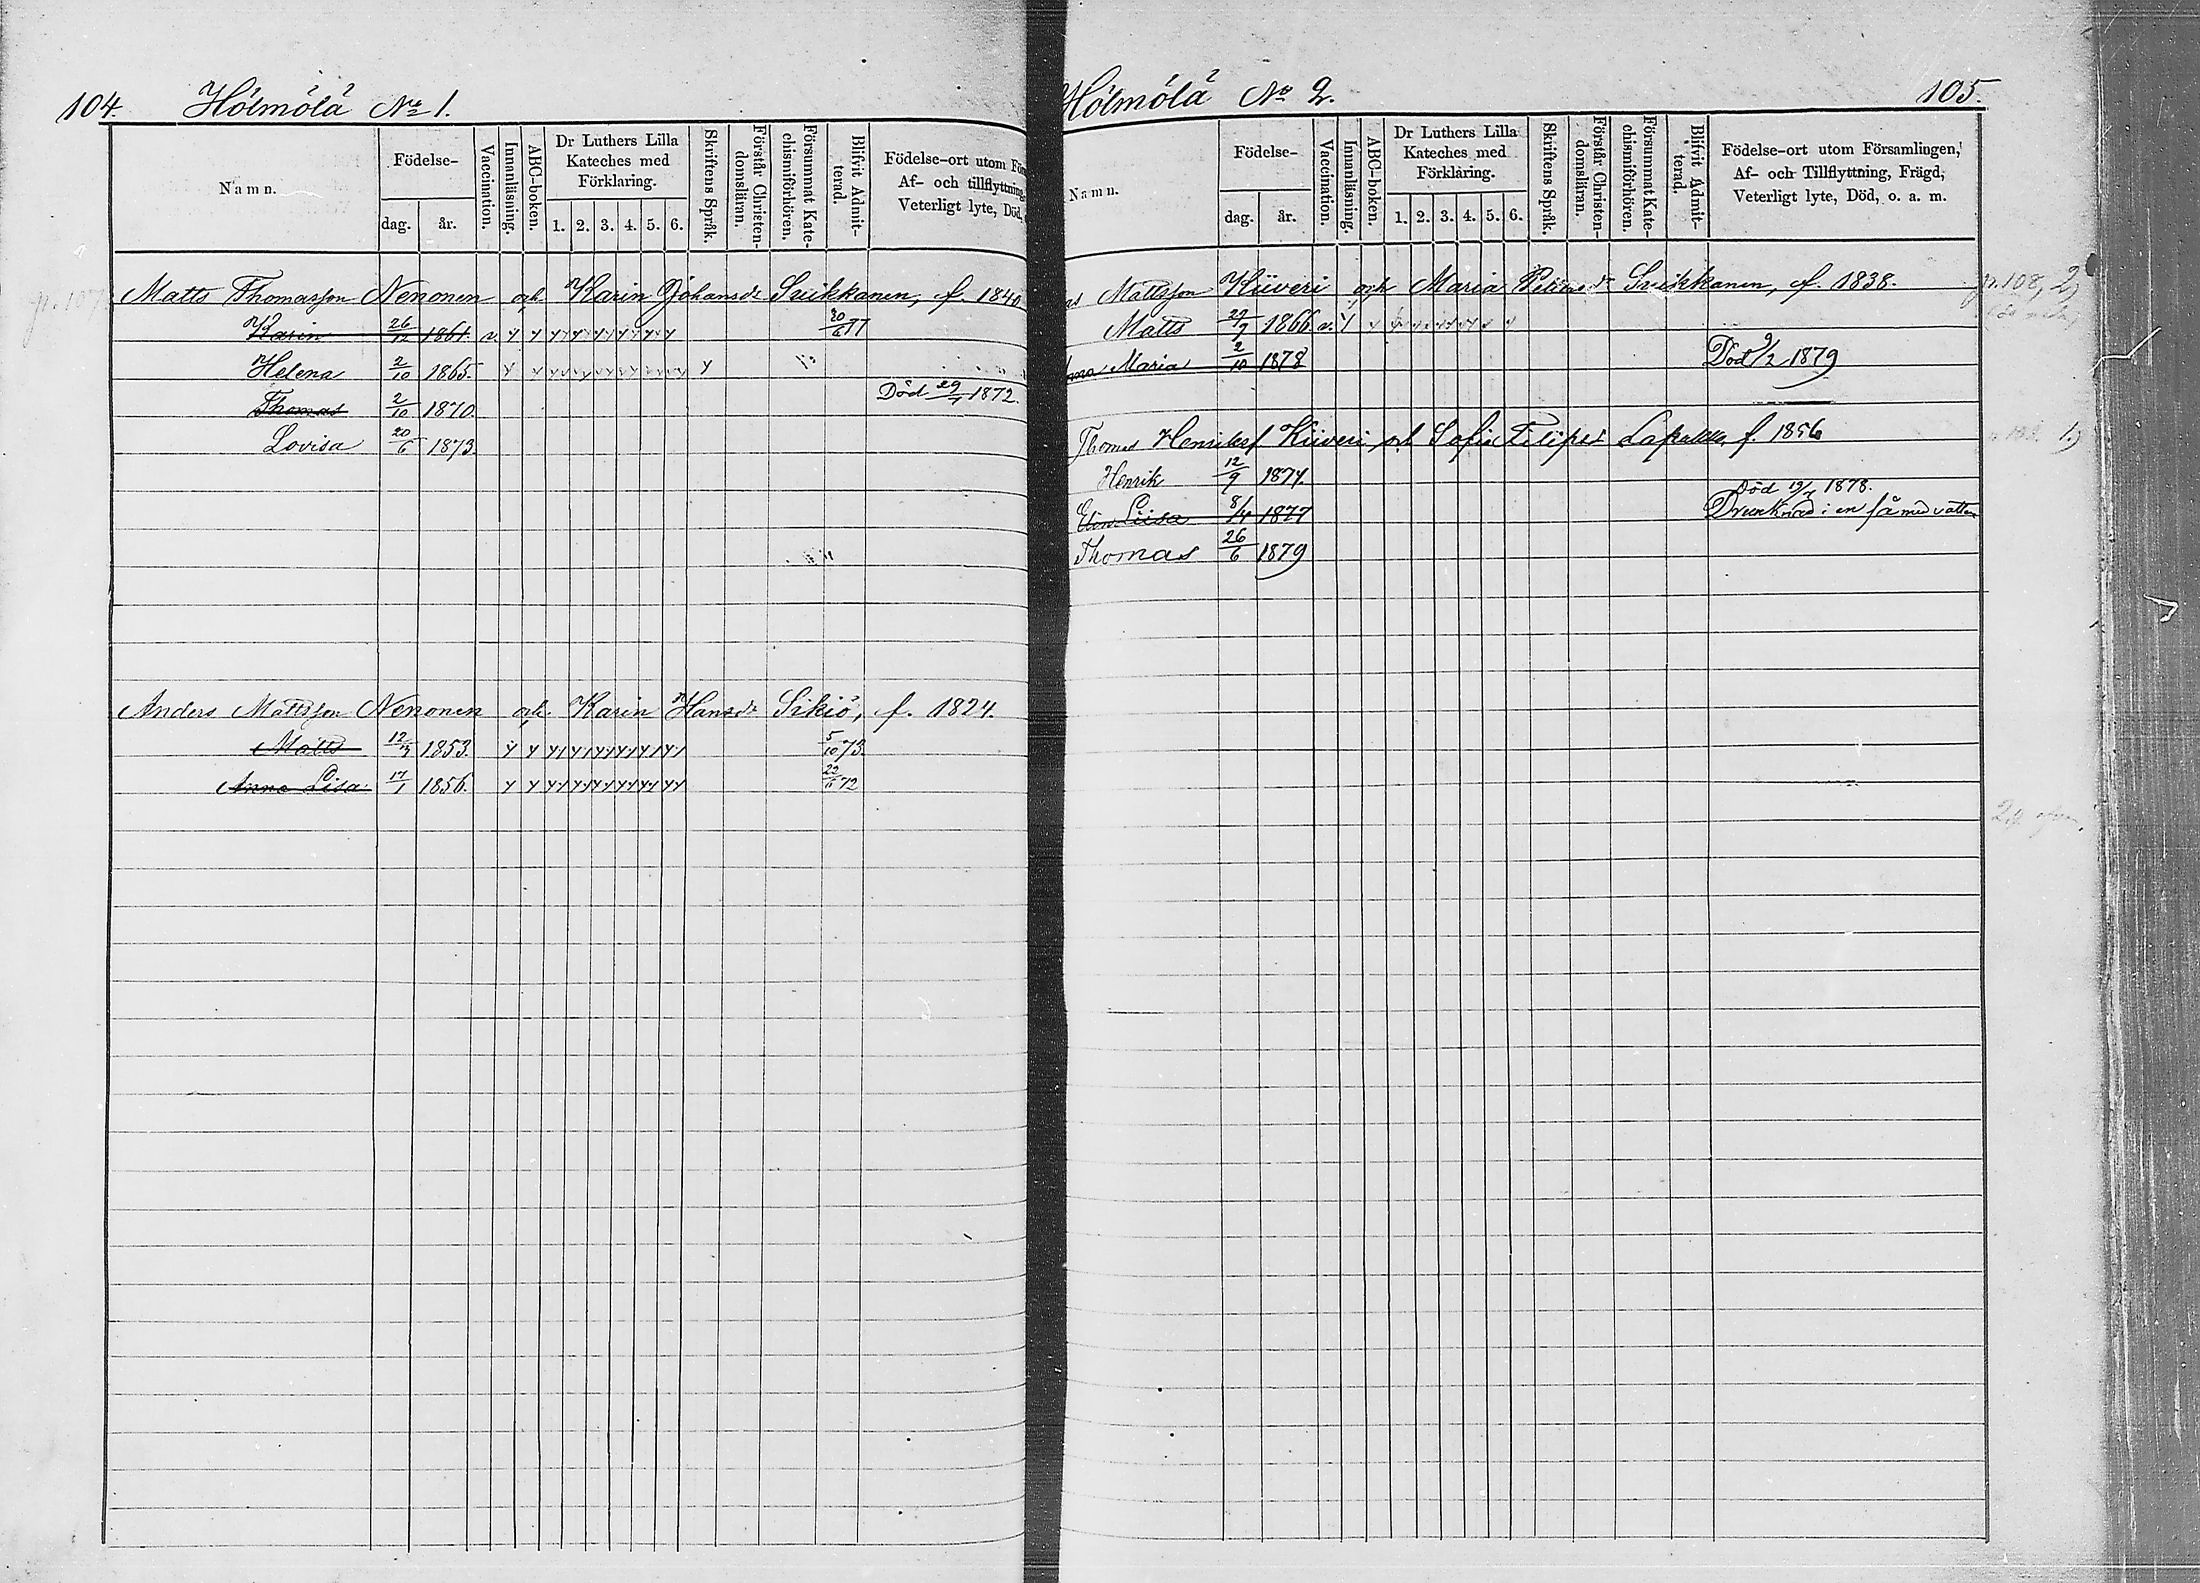 104. Hölmölä No 1.
Namn.
Födelse-
dag. år.
Vaccination.
Innanläsning.
ABC-boken.
Dr Luthers Lilla
Kateches med
Förklaring.
1. 2. 3. 4. 5. 6.
Skriftens Språk.
Förstår Christen-
domsläran.
Försummat Kate-
chismiförhören.
Blifvit Admit-
terad.
Födelse-ort utom För
Af- och tillflyttning,
Veterligt lyte, Död,
Matts Thomasson Nenonen och Karin Johansdr Suikkanen, f. 1840
Karin 26/12 1861. v. 20/6 77
Helena 2/10 1865.
Thomas 2/10 1870. Död 1872.
Lovisa 20/6 1873.
Anders Mattsson Nenonen och Karin Hansdr Sikiö, f. 1824.
Matts 12/3 1853. 5/10 73
Anna Lisa 17/1 1856. 22/6 72
Hölmölä No 2. 105.
Namn.
Födelse-
dag. år.
Vaccination.
Innanläsning.
ABC-boken.
Dr Luthers Lilla
Kateches med
Förklaring.
1. 2. 3. 4. 5. 6.
Skriftens Språk.
Förstår Christen-
domsläran.
Försummat Kate-
chismiförhören.
Blifvit Admit-
terad.
Födelse-ort utom Församlingen,
Af- och Tillflyttning, Frägd,
Veterligt lyte, Död, o. a. m.
Mattsson Kiiveri och Maria Suikkanen, f. 1838. p. 108, 2)
Matts 1866. v.
Maria 2/10 1878 Död 9/2 1879
Thomas Henriksf Kiiveri och Sofia Filipsd f. 1856
Henrik 12/9 1874.
Död 1878.
Liisa 8/4 1877 Drunknad i en så med vatten
Thomas 26/6 1879